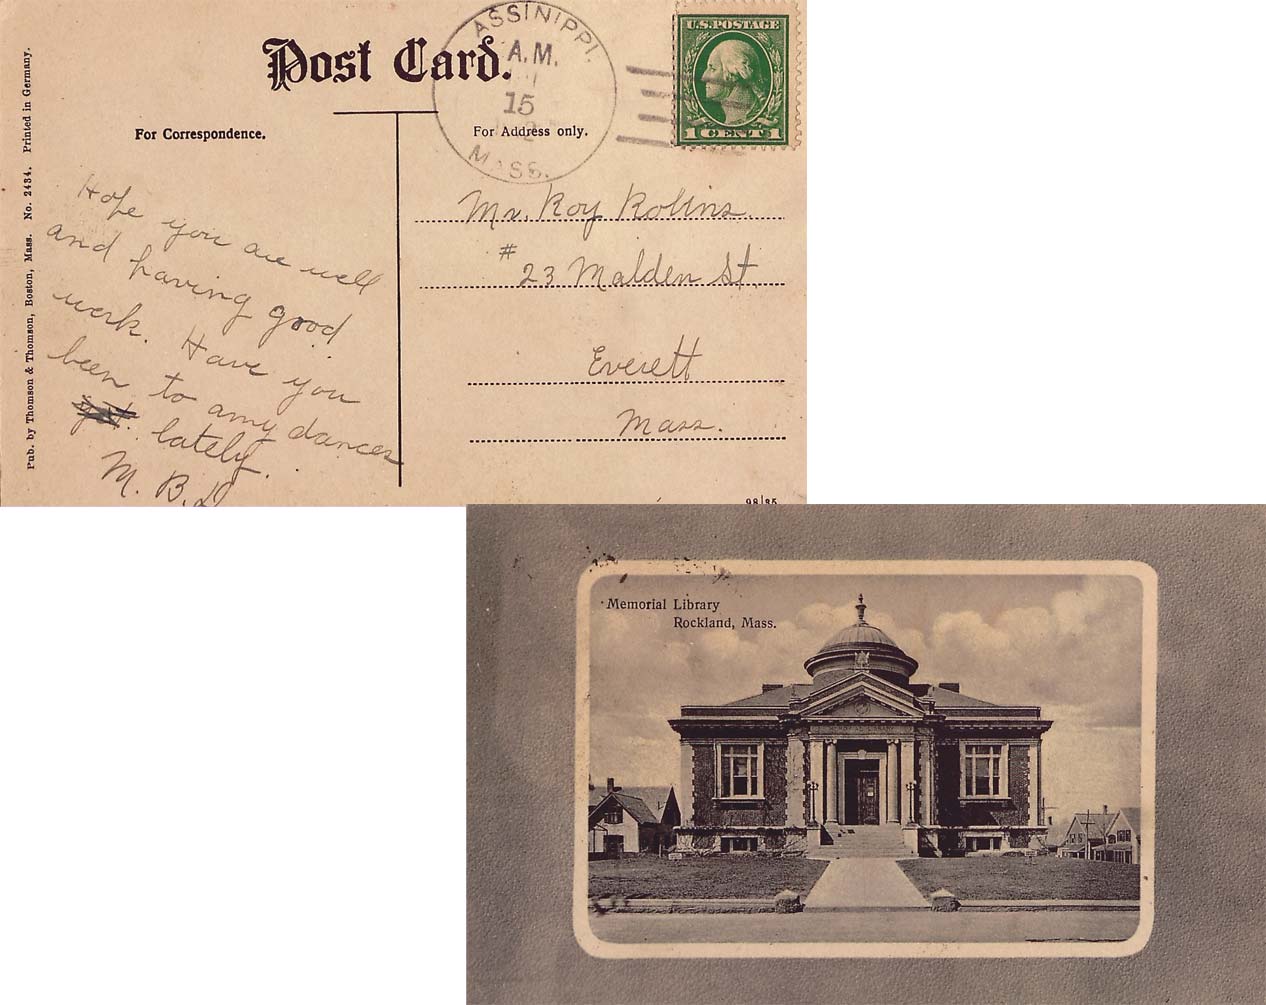 Post Card.
ASSINIPPI.
A.M.
15
MASS.
U.S. POSTAGE
1 CENT 1
For Correspondence.
For Address only.
Pub. by Thomson & Thomson, Boston, Mass. No. 2434. Printed in Germany.
Hope you are well
and having good
work. Have you
been to any dances
lately.
M. B. D
Mr. Roy Robins.
# 23 Malden St.
Everett
Mass.
98/85
Memorial Library
Rockland, Mass.